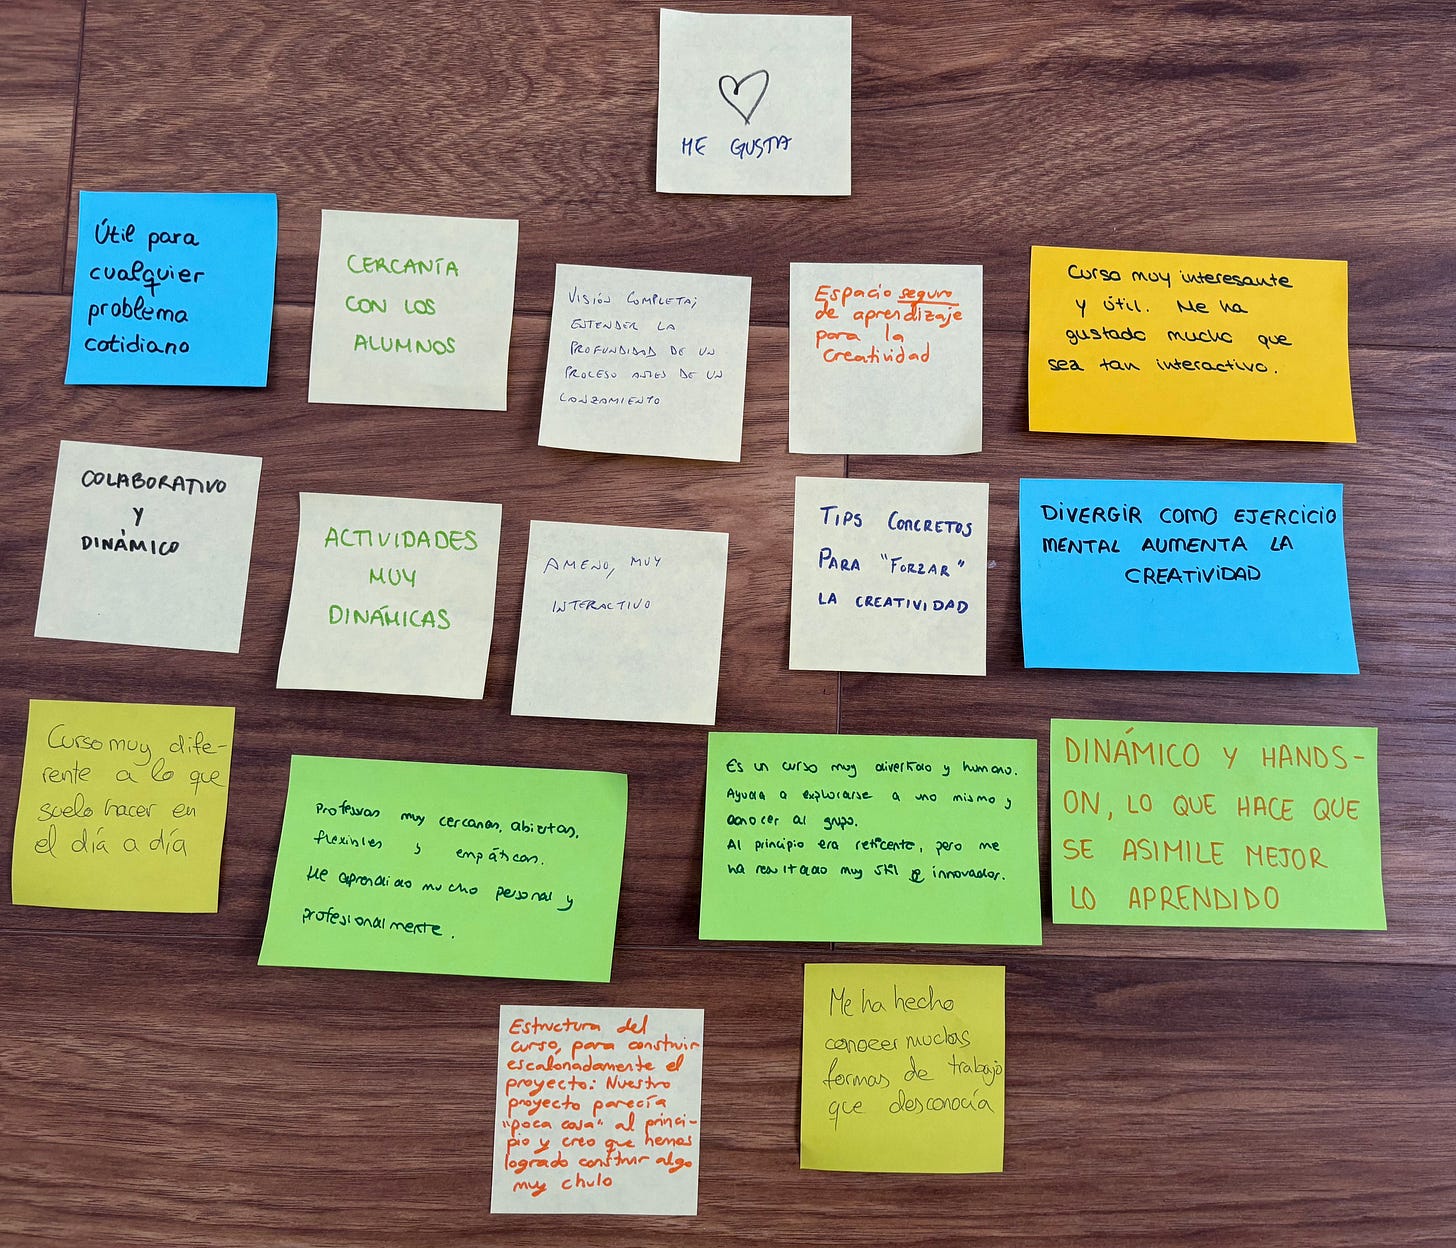 ME GUSTA
Útil para
cualquier
problema
cotidiano
CERCANÍA
CON LOS
ALUMNOS
VISIÓN COMPLETA;
ENTENDER LA
PROFUNDIDAD DE UN
PROCESO ANTES DE UN
LANZAMIENTO
Espacio seguro
de aprendizaje
para la
creatividad
Curso muy interesante
y útil. Me ha
gustado mucho que
sea tan interactivo.
COLABORATIVO
Y
DINÁMICO
ACTIVIDADES
MUY
DINÁMICAS
AMENO, MUY
INTERACTIVO
TIPS CONCRETOS
PARA "FORZAR"
LA CREATIVIDAD
DIVERGIR COMO EJERCICIO
MENTAL AUMENTA LA
CREATIVIDAD
Curso muy dife-
rente a lo que
suelo hacer en
el día a día
Profesoras muy cercanas, abiertas,
flexibles y empáticas.
He aprendido mucho personal y
profesionalmente.
Es un curso muy divertido y humano.
Ayuda a explorarse a uno mismo y
conocer al grupo.
Al principio era reticente, pero me
ha resultado muy útil e innovador.
DINÁMICO Y HANDS-
ON, LO QUE HACE QUE
SE ASIMILE MEJOR
LO APRENDIDO
Estructura del
curso, para construir
escalonadamente el
proyecto: Nuestro
proyecto parecía
"poca cosa" al princi-
pio y creo que hemos
logrado construir algo
muy chulo
Me ha hecho
conocer muchas
formas de trabajo
que desconocía